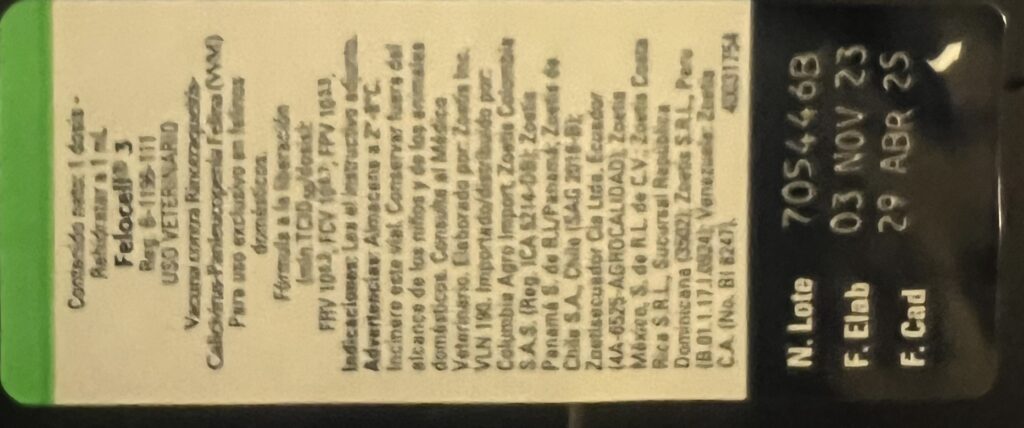 Contenido neto: 1 dosis -
Rehidratar a 1 mL
Felocell® 3
Reg. B-1196-111
USO VETERINARIO
Vacuna contra Rinotraqueitis-
Calicivirus-Panleucopenia Felina (VVM)
Para uso exclusivo en felinos
domésticos.
Fórmula a la liberación
FCV FPV
Indicaciones: Lea el instructivo adjunto.
Advertencias: Almacene a 2°-8°C.
Incinere este vial. Conservar fuera del
alcance de los niños y de los animales
domésticos. Consulte al Médico
Veterinario. Elaborado por: Zoetis Inc.
VLN 190. Importado/distribuido por:
Colombia Agro Import, Zoetis Colombia
S.A.S. (Reg. ICA 5214-DB); Zoetis
Panamá S. de R.L/Panamá; Zoetis de
Chile S.A., Chile (SAG 2018-B);
Zoetisecuador Cia Ltda, Ecuador
(4A-6525-AGROCALIDAD); Zoetis
México, S. de R.L. de C.V.; Zoetis Costa
Rica S.R.L., Sucursal República
Dominicana Zoetis S.R.L., Perú
Venezuela: Zoetis
C.A. (No. BI 6247).
40031754
N. Lote 705446B
F. Elab 03 NOV 23
F. Cad 29 ABR 25